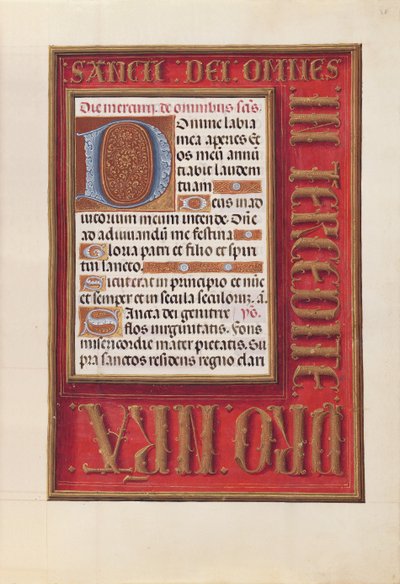 SANCTI DEI OMNES
IN TERCEDITE
PRO NRA
Die mercurij. de omnibus scīs.
Domine labia
mea aperies Et
os meū annū
tiabit laudem
tuam
Deus in ad
iutorium meum intende. Dn̄e
ad adiuuandū me festina
Gloria patri et filio et spiri
tui sancto.
Sicut erat in principio et nūc
et semper et in secula seculorū. ā.
Sancta dei genitrix
flos uirginitatis. Fons
misericordie mater pietatis. Su
pra sanctos residens regno clari